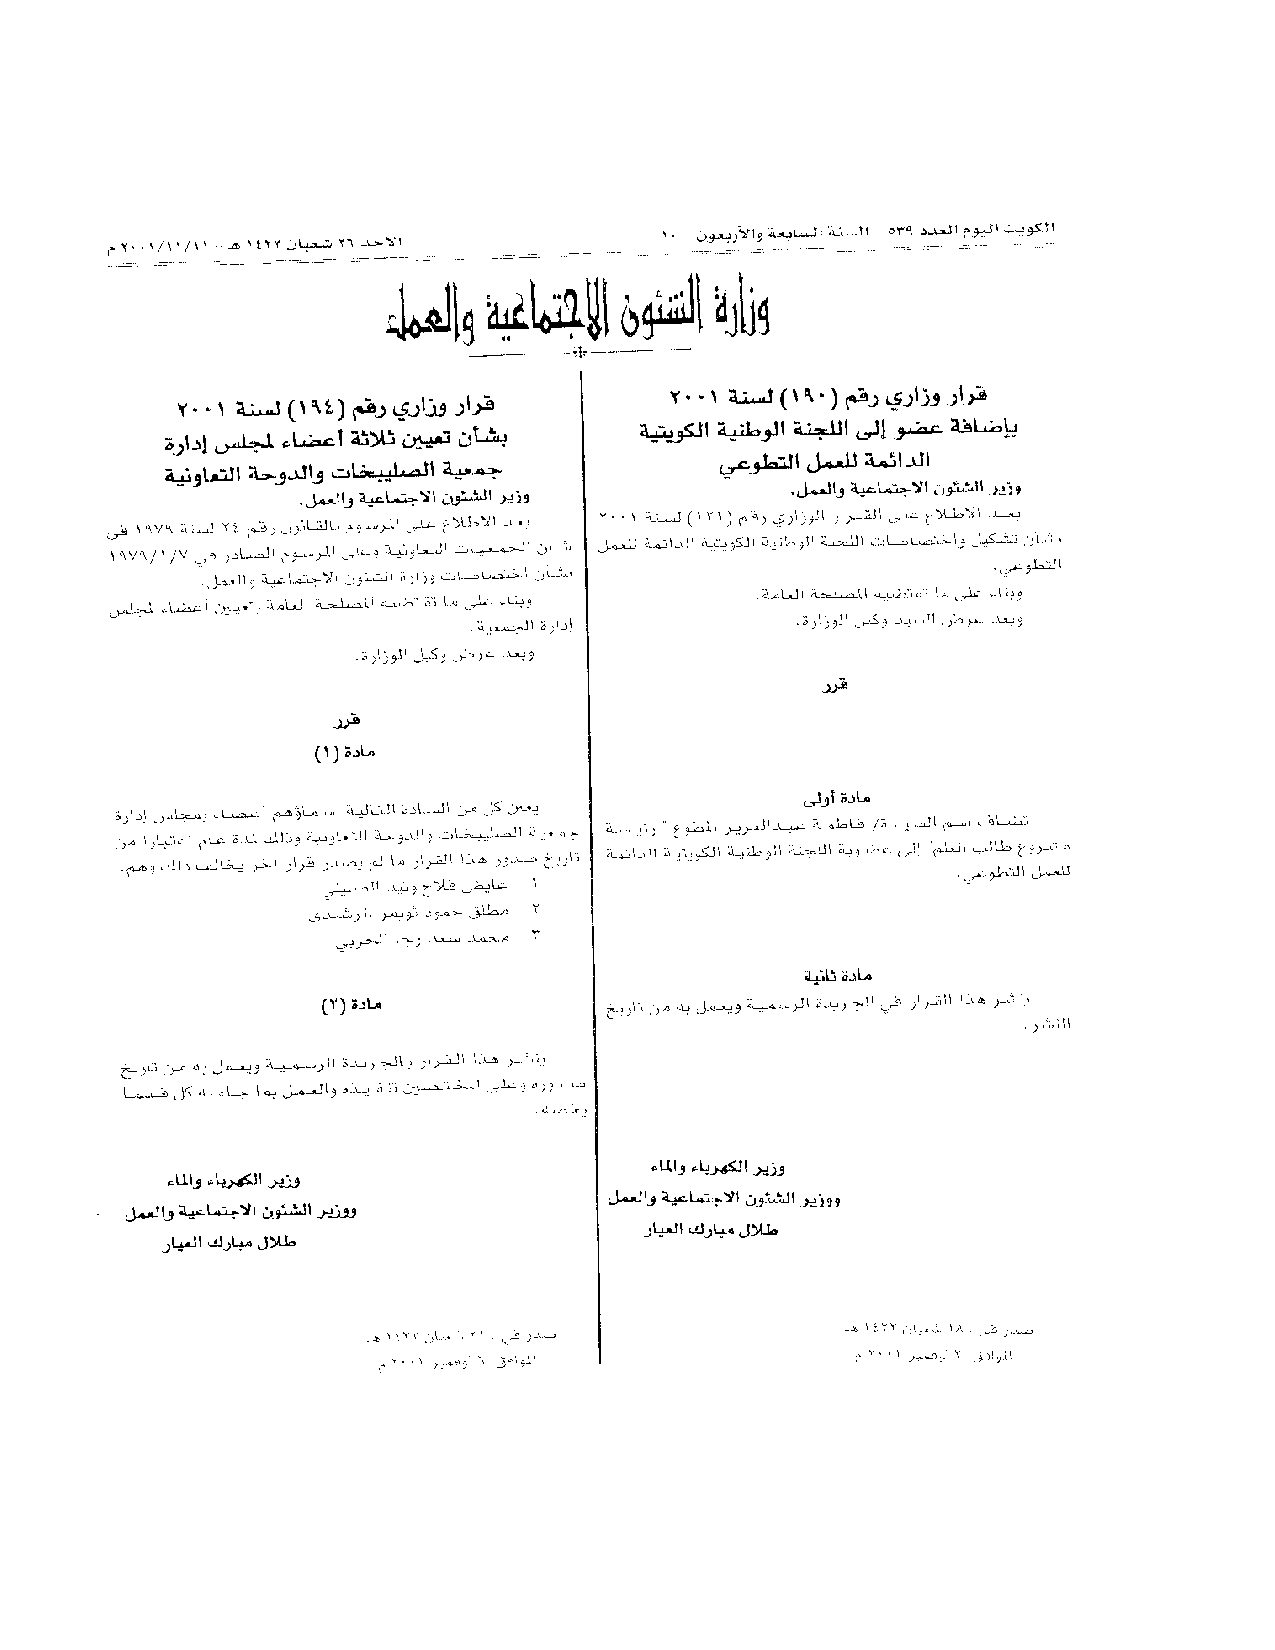 الكويت اليوم العدد ٥٣٩ السابعة والأربعون ١٠
الاحد ٢٦ شعبان ١٤٢٢ هـ - ٢٠٠١/١١/١١ م
وزارة الشئون الاجتماعية والعمل
قرار وزاري رقم (١٩٠) لسنة ٢٠٠١
بإضافة عضو إلى اللجنة الوطنية الكويتية
الدائمة للعمل التطوعي
وزير الشئون الاجتماعية والعمل.
بعد الاطلاع على القرار الوزاري رقم (١٢١) لسنة ٢٠٠١
بشأن تشكيل واختصاصات اللجنة الوطنية الكويتية الدائمة للعمل
التطوعي.
وبناء على ما تقتضيه المصلحة العامة.
وبعد عرض السيد وكيل الوزارة.
قرر
مادة أولى
تضاف اسم السيدة/ فاطمة عبدالعزيز المطوع "رئيسة
مشروع طالب العلم" إلى عضوية اللجنة الوطنية الكويتية الدائمة
للعمل التطوعي.
مادة ثانية
ينشر هذا القرار في الجريدة الرسمية ويعمل به من تاريخ
النشر.
وزير الكهرباء والماء
ووزير الشئون الاجتماعية والعمل
طلال مبارك العيار
صدر في ١٨ شعبان ١٤٢٢ هـ
الموافق نوفمبر ٢٠٠١ م
قرار وزاري رقم (١٩٤) لسنة ٢٠٠١
بشأن تعيين ثلاثة أعضاء لمجلس إدارة
جمعية الصليبخات والدوحة التعاونية
وزير الشئون الاجتماعية والعمل.
بعد الاطلاع على المرسوم بالقانون رقم ٢٤ لسنة ١٩٧٩ في
شأن الجمعيات التعاونية وعلى المرسوم الصادر في ١٩٧٩/١/٧
بشأن اختصاصات وزارة الشئون الاجتماعية والعمل.
وبناء على ما تقتضيه المصلحة العامة بتعيين أعضاء لمجلس
إدارة الجمعية.
وبعد عرض وكيل الوزارة.
قرر
مادة (١)
يعين كل من السادة التالية أسماؤهم أعضاء بمجلس إدارة
جمعية الصليبخات والدوحة التعاونية وذلك لمدة عام اعتبارا من
تاريخ صدور هذا القرار ما لم يصدر قرار آخر يخالف ذلك وهم.
١ عايض فلاح
٢ مطلق حمود الرشيدي
٣ محمد سعد الحربي
مادة (٢)
ينشر هذا القرار بالجريدة الرسمية ويعمل به من تاريخ
صدوره وعلى المختصين تنفيذه والعمل بما جاء به كل فيما
يخصه.
وزير الكهرباء والماء
ووزير الشئون الاجتماعية والعمل
طلال مبارك العيار
صدر في ٢١ شعبان ١٤٢٢ هـ
الموافق ٦ نوفمبر ٢٠٠١ م